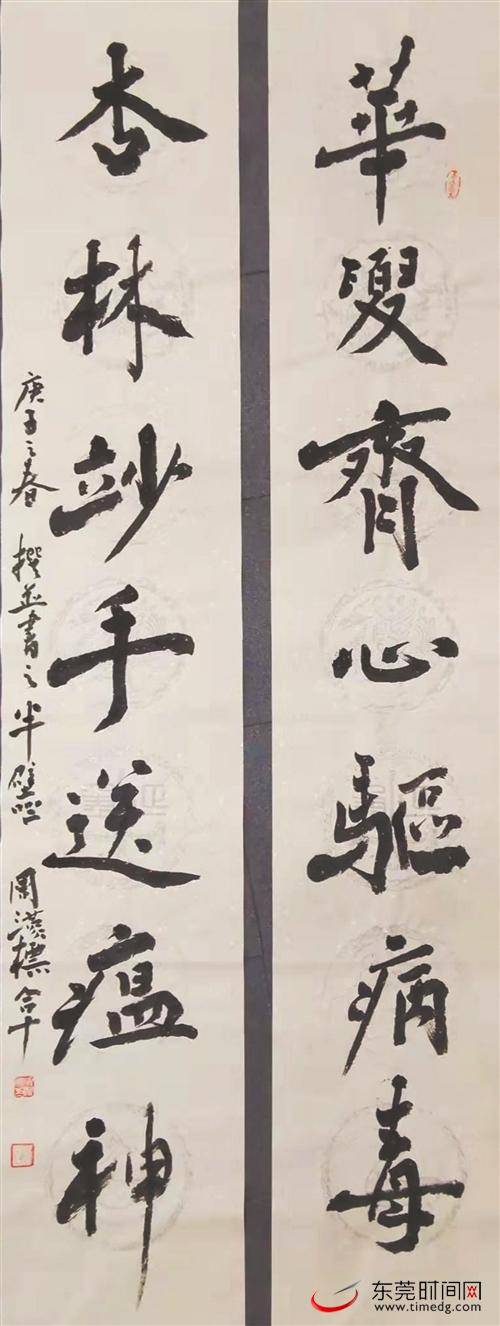 華夏齊心驅病毒
杏林竗手送瘟神
庚子之春 撰並書之半 周漢標合十
东莞时间网
www.timedg.com